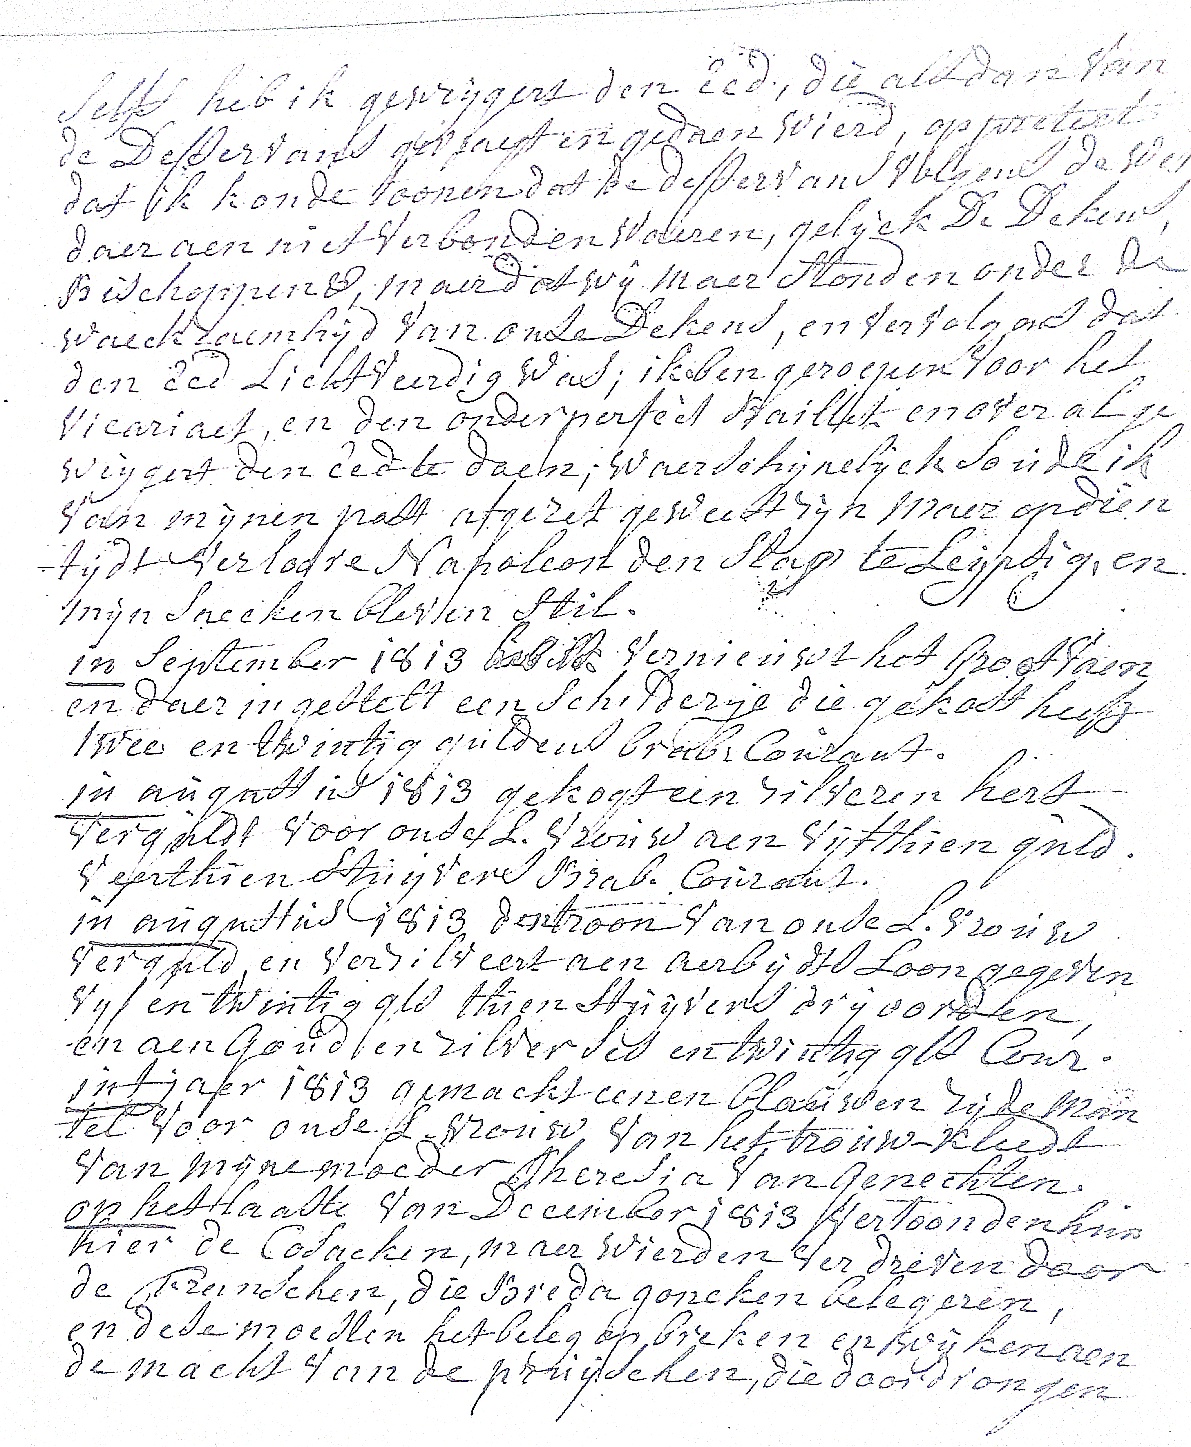 Selfs heb ik gewygert den Eed, die als dan van
de Desservans gevraegt en gedaen wierd, op pretext
dat ik konde toonen dat de desservans volgens de wet
daer aen niet verbonden waeren, gelyck De Dekens,
Bisschoppen &, maer dat wy maer stonden onder de
waeckzaemhyd van onse Dekens, en vervolgens dat
den eed Lichtveerdig was; ik ben geroepen voor het
Vicariaet, en den onderperfect en overal ge
wygert den eed te doen; waerschynelyck soude ik
van mynen post afgezet geweest zyn maer op dien
tydt verloore Napoleon den Slag te Leypsig, en
myn saecken bleven stil.
in September 1813 vernieuwt het
en daer in gestelt een schilderye die gekost heeft
twee en twintig guldens brab. Courant.
in augustus 1813 gekogt een zilveren hert
verguldt voor onse L. Vrouw aen vyfthien guld.
veerthien stuyvers Brab. Courant.
in augustus 1813 den troon van onse L. Vrouw
verguld en verzilveert aen aerbydts Loon gegeven
vyf en twintig gls thien stuyvers dry oorden,
en aen Goud en zilver ses en twintig gls Cour.
int jaer 1813 gemackt eenen blauwen zyde man
tel voor onse L. Vrouw, van het trouw-kleedt
van myne moeder Theresia Van Genechten.
op het laaste van December 1813 vertoonden hun
hier de Cosacken, maer wierden verdreven door
de Franschen, die Breda goncken belegeren,
en dese moesten het beleg op breken en wyken aen
de macht van de pruysschen, die doordrongen